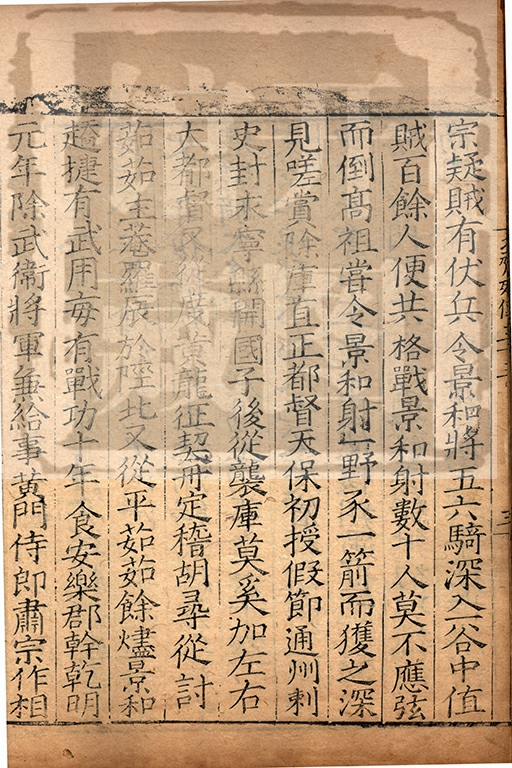 宗疑賊有伏兵令景和將五六騎深入一谷中值
賊百餘人便共格戰景和射數十人莫不應弦
而倒髙祖甞令景和射一野豕一箭而獲之深
見嗟賞除庫直正都督天保初授假節通州剌
史封永寧縣開國子後從襲庫莫奚加左右
大都督又從度黃龍征契丹定稽胡尋從討
茹茹主菴羅辰於陘北又從平茹茹餘燼景和
趫捷有武用每有戰功十年食安樂郡幹乾明
元年除武衛將軍兼給事黃門侍郎肅宗作相